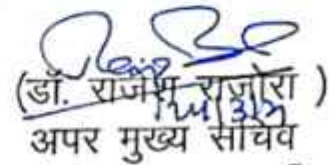 (डॉ. राजेश राजोरा )
अपर मुख्य सचिव